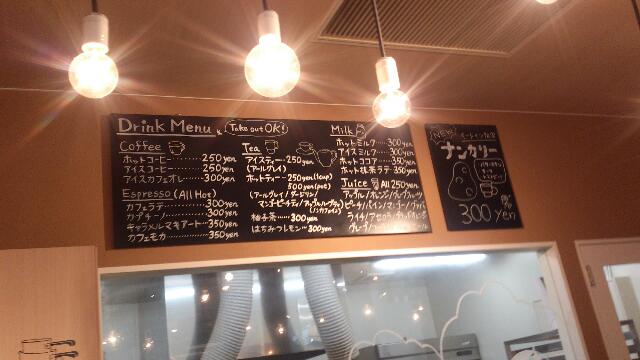 Drink Menu
Take out OK!
Coffee
ホットコーヒー 250yen
アイスコーヒー 250yen
アイスカフェオレ 300yen
Espresso (All Hot)
カフェラテ 300yen
カプチーノ 300yen
キャラメルマキアート 350yen
カフェモカ 350yen
Tea
アイスティー 250yen
(アールグレイ)
ホットティー 250yen (1cup)
500yen (pot)
(アールグレイ/ダージリン/
マンゴーピーチティ/アップルハーブティ)
(ノンカフェイン)
柚子茶 300yen
はちみつレモン 300yen
Milk
ホットミルク 300yen
アイスミルク 300yen
ホットココア 350yen
ホット抹茶ラテ 350yen
Juice All 250yen
アップル/オレンジ/グレープフルーツ
ピーチ/パイン/マンゴー/グァバ
ライチ/アセロラ
NEW
ナンカリー
300yen